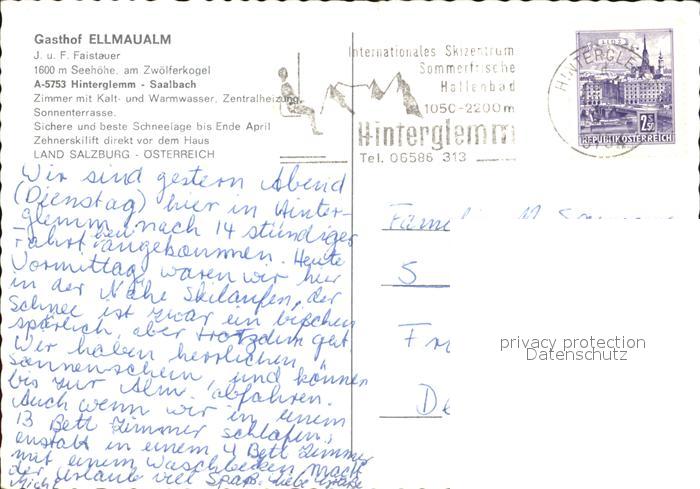 Gasthof ELLMAUALM
J. u. F. Faistauer
1600 m Seehöhe, am Zwölferkogel
A-5753 Hinterglemm - Saalbach
Zimmer mit Kalt- und Warmwasser, Zentralheizung,
Sonnenterrasse.
Sichere und beste Schneelage bis Ende April
Zehnerskilift direkt vor dem Haus
LAND SALZBURG - ÖSTERREICH
Internationales Skizentrum
Sommerfrische
Hallenbad
1050-2200m
Hinterglemm
Tel. 06586 313
LINZ
2.50
REPUBLIK ÖSTERREICH
HINTERGLE
Wir sind gestern Abend
(Dienstag) hier in Hinter-
glemm nach 14 stündiger
Fahrt angekommen. Heute
Vormittag waren wir hier
in der Nähe Skilaufen, der
Schnee ist zwar ein bißchen
spärlich, aber trotzdem gut
Wir haben herrlichen
Sonnenschein, und können
bis zur Alm abfahren.
Auch wenn wir in einem
13 Bett Zimmer schlafen,
anstatt in einem 4 Bett Zimmer
mit einem Waschbecken macht
der Urlaub viel Spaß. liebe Grüße
Fami
M
S
Fr
De
privacy protection
Datenschutz